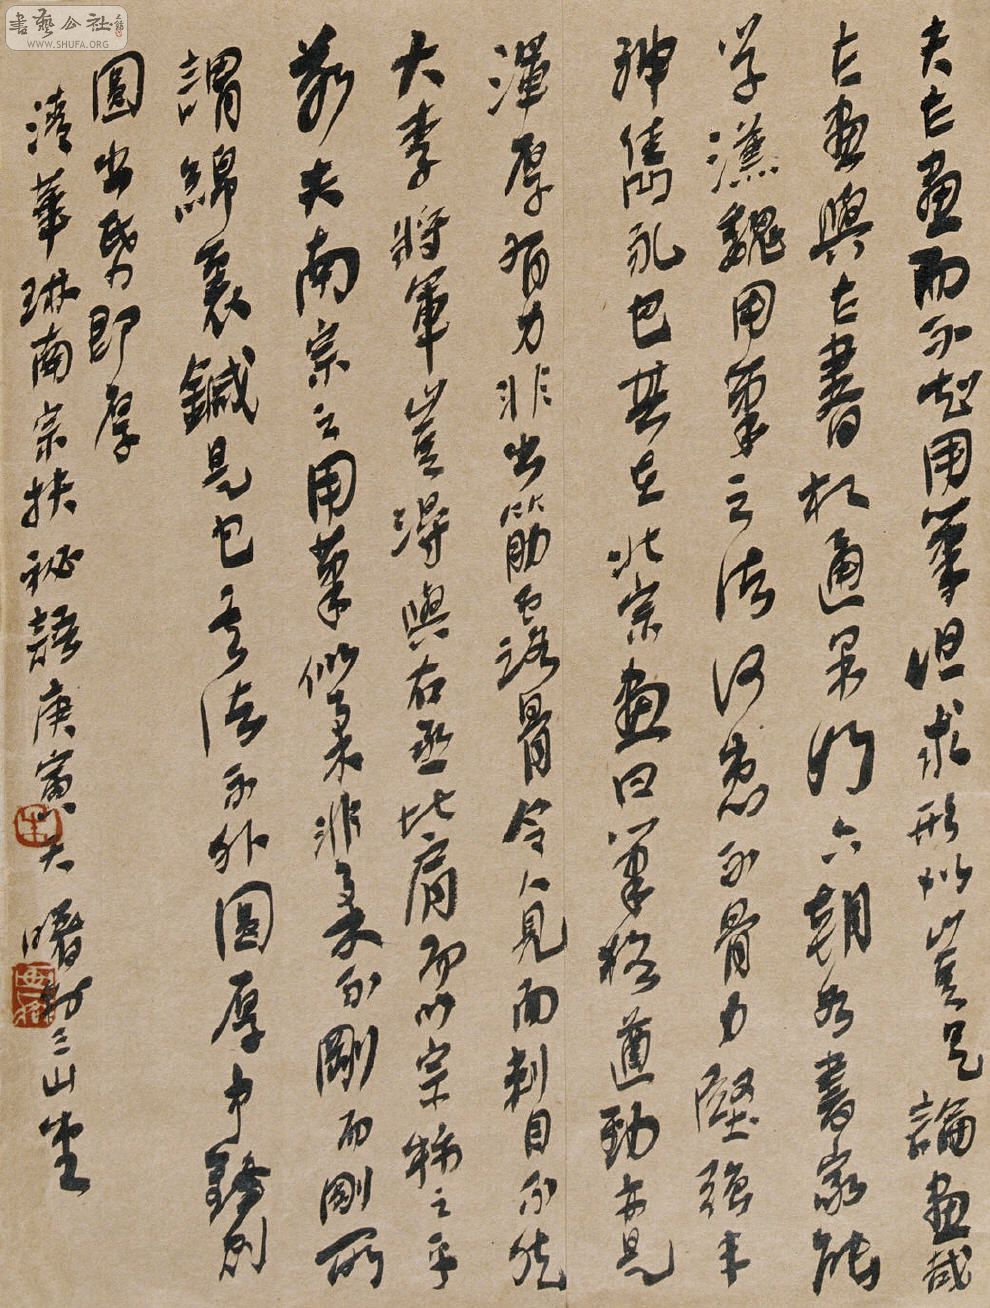 夫古畫而不知用筆但求形似豈足論畫哉
古畫與古書相通果能六朝如書家能
學漢魏用筆之法何患不骨力堅強丰
神雋永也其在北宗畫曰筆格遒勁亦見
渾厚有力非出筋露骨令人見而刺目不然
大李將軍豈得與右丞比肩而以宗稱之乎
若夫南宗之用筆似柔非柔不剛而剛所
謂綿裏鍼是也其法不外圓厚中鋒則
圓出勢即厚
清華琳南宗抉秘語庚寅大
曙於三山堂
書藝公社
WWW.SHUFA.ORG